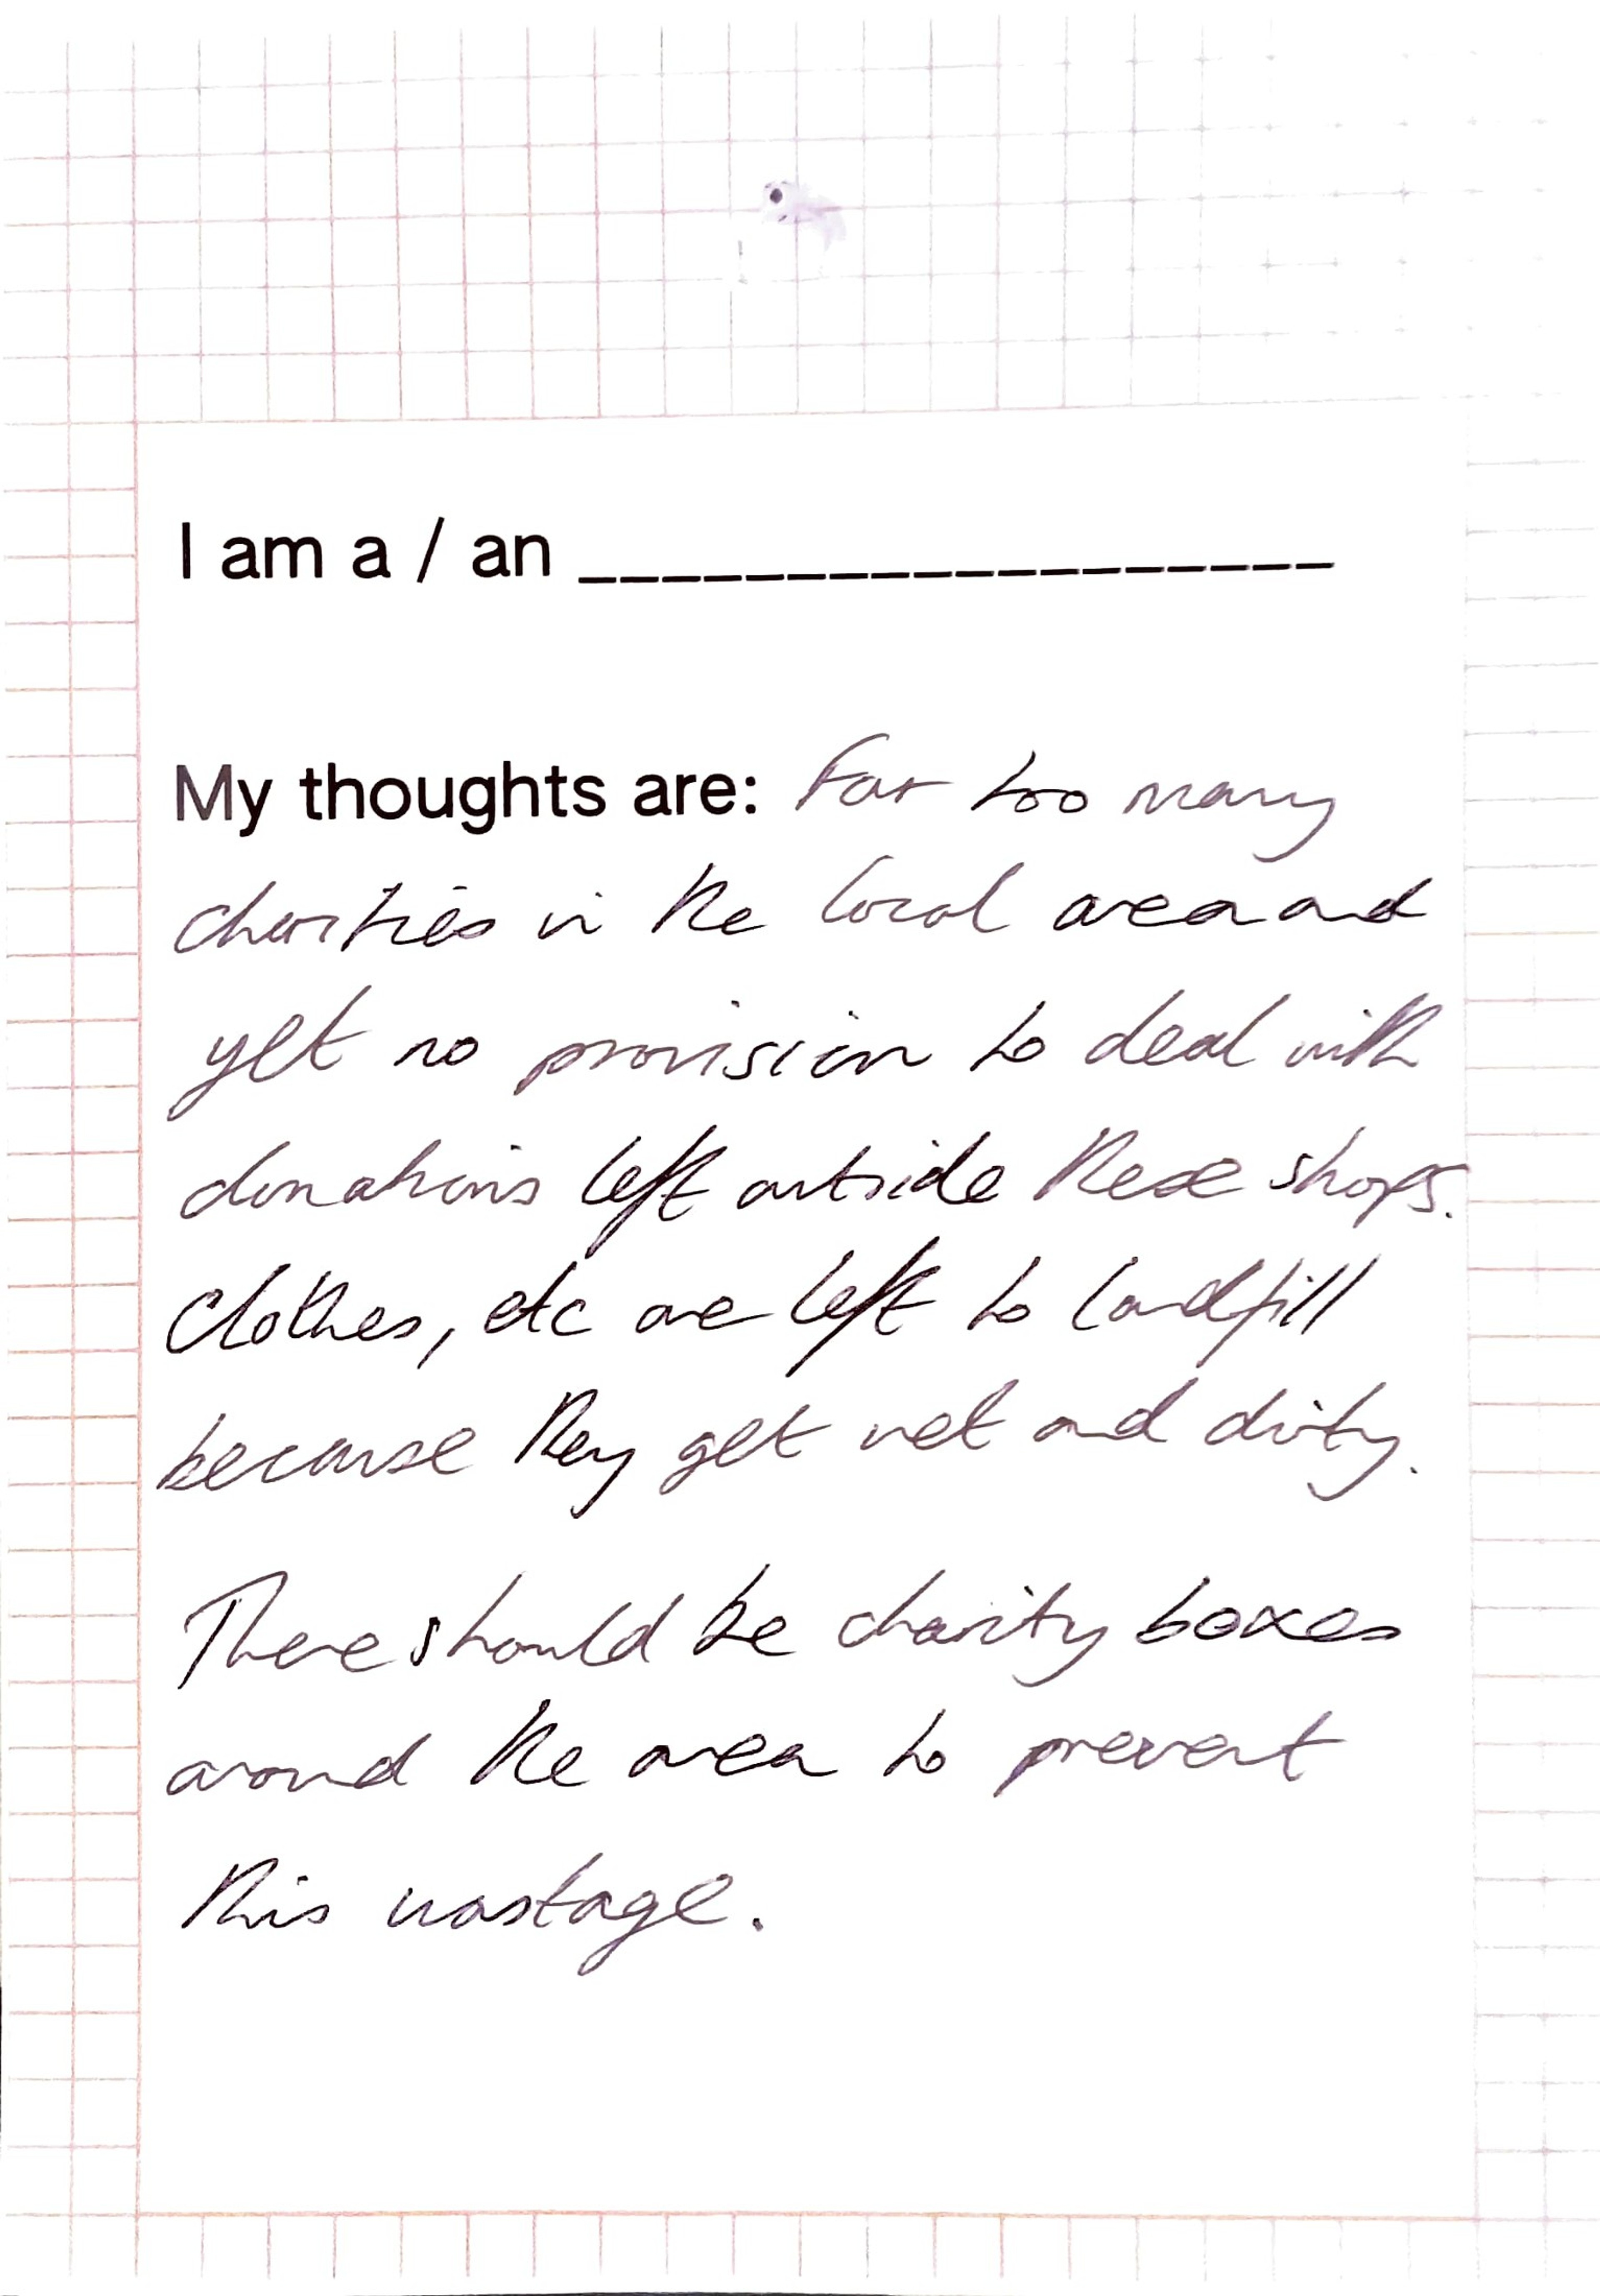 I am a / an __________________
My thoughts are: Far too many
charities in the local area and
yet no provision to deal with
donations left outside these shops.
Clothes, etc are left to landfill
because they get wet and dirty.
There should be charity boxes
around the area to prevent
this wastage.